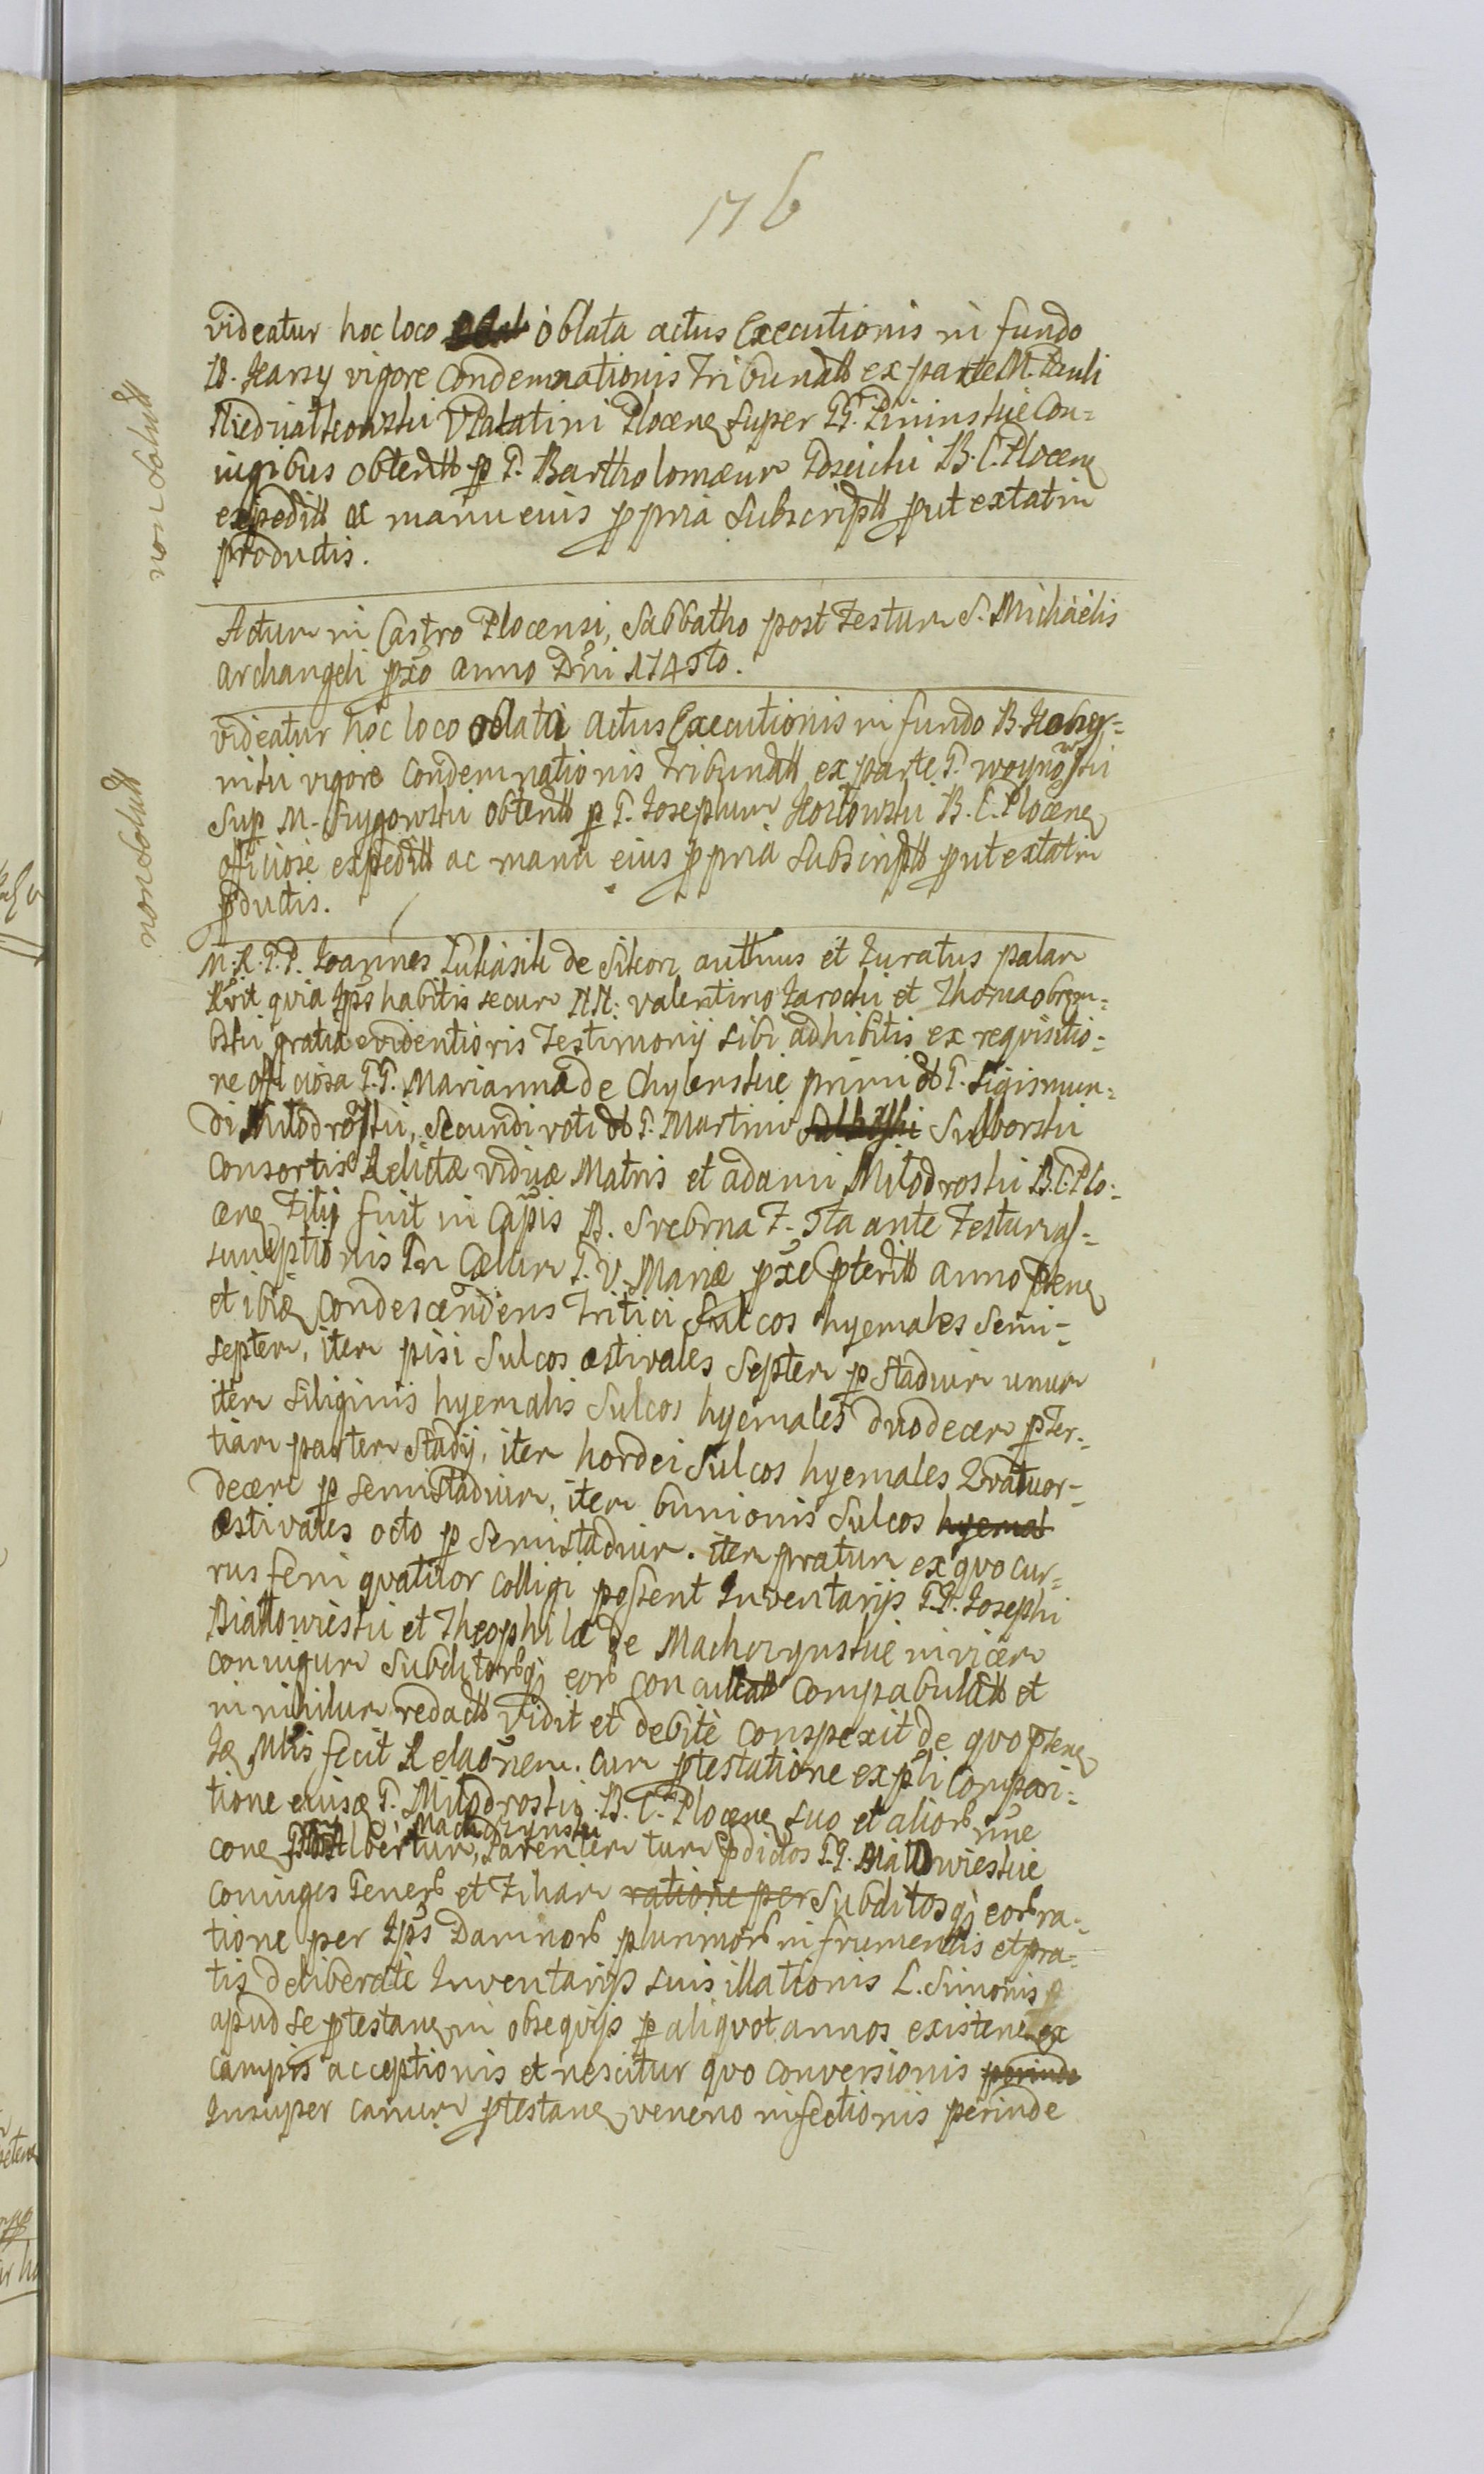 176
videatur hoc loco oblata actus Executionis in fundo
B. Karsy vigore Condemnationis Tribunall ex parte M. Pauli
Niedziałkowski VPalatini Plocens Super GG. Pininskie Con=
iugibus obtentt p G. Bartholomæum B. C. Plocens
expeditt ac manu eius ppria Subscriptt put extat in
productis.
non Solutt
Actum in Castro Plocensi, Sabbatho post Festum S. Michaëlis
Archangeli pxo Anno Dni 1745to.
videatur hoc loco oblata Actus Executionis in fundo B.
vigore Condemnationis Tribunall ex parte G. Woynowski
Sup M. Frygowski obtentt p G. Josephum Kozłowski B. C. Plocens
officiose expeditt ac manu eius ppria Subscriptt put extat in
pductis.
non Solutt
M. R. G. P. Joannes Lukasik de Sikorz autthus et Juratus palam
Rvit quia Ips habitis secum NN. Valentino Jarocki et Thoma
gratia evidentioris Testimonij sibi adhibitis ex requisitio=
ne officiosa G.G. Marianna de Chylenskie primi G. Sigismun=
di Miłodroski, Secundi voti G. Martini Suborski
Consortis Relictæ viduæ Matris et Adami Miłodroski B.C. Plo=
cens Filij fuit in Capis B. Srebrna F. 5ta ante Festum As=
sumptionis In Cælum B. V. Mariæ pxe pteritt anno ptens
et ibiq condescendens Tritici Sulcos hyemales Semi=
septem, item pisi Sulcos æstivales Septem p Stadium unum
item Siliginis hyemalis Sulcos hyemales duodecem p ter=
tiam partem Stadij, item hordei Sulcos hyemales Quatuor=
decem p Semistadium, item bunionis Sulcos hyemal
æstivales octo p Semistadium. item pratum ex quo cur=
rus feni quatuor colligi possent Inventarijs G.G. Josephi
Białłowieski et Theophilæ de Machczynskie invicem
coniugum Subditorbq eorb conculcatt compabulatt et
in nihilum redactt vidit et debitè conspexit de quo ptens
Mtis fecit Relaonem. Cum ptestatione expsti Compari=
tione eiusq G. Miłodroski B. C. Plocens suo et aliorb nne
cone G. Albertum Machczynski, Parentem tum pdictos G.G. Białłowieskie
Coniuges Generb et Filiam ratione per Subditosq eorb ra=
tione per Ips Damnorb plurimorb in frumentis et pra=
tis deliberatè Inventarijs suis illationis L. Simonis
apud se ptestans in obsequijs p aliquot annos existens ex
campis acceptionis et nescitur quo conversionis perinde
Insuper canum ptestans veneno infectionis perinde